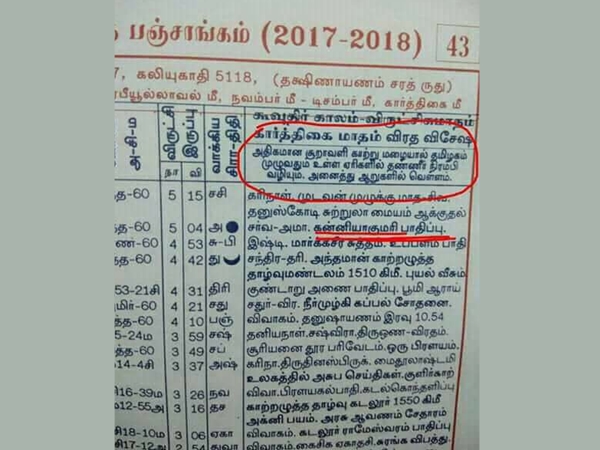 பஞ்சாங்கம் (2017-2018) 43
7, கலியுகாதி 5118, (தக்ஷிணாயணம் சரத் ருது)
ரபீயூல்லாவல் மீ, நவம்பர் மீ - டிசம்பர் மீ, கார்த்திகை மீ
அ-சி-ம விருட்சி இருப்பு வாக்கிய சிரா-திதி கூவுதிர் காலம்-விருட்சிகமாதம்
கார்த்திகை மாதம் விரத விசேஷ
நா வி
அதிகமான சூறாவளி காற்று மழையால் தமிழகம்
முழுவதும் உள்ள ஏரிகளில் தண்ணீர் நிரம்பி
வழியும். அனைத்து ஆறுகளில் வெள்ளம்.
த்த-60 5 15 சசி கரிநாள். முடவன் முழுக்கு மாத-சிவ
தனுஸ்கோடி சுற்றுலா மையம் ஆக்குதல்
த்த-60 5 04 அ சாவ-அமா. கன்னியாகுமரி பாதிப்பு.
ண்-60 4 53 சு-பி இஷ்டி. மார்க்கசீர் சுத்தம். உப்பளம் பாதி
4 42 து சந்திர-தரி. அந்தமான் காற்றழுத்த
தாழ்வுமண்டலம் 1510 கிமீ. புயல் வீசும்
53-21சி 4 31 திரி குண்டாறு அணை பாதிப்பு. பூமி ஆராய்
மிர்-60 4 21 சது சதுர்-விர. நீர்முழ்கி கப்பல் சோதனை.
த்த-60 4 10 பஞ் விவாகம். தனுஷாயணம் இரவு 10.54
5-24ம 3 59 சஷ் தனியநாள்.சஷ்விரா.திருஒண-விரதம்.
த்த-60 3 49 சப் சூரியனை தூர பரிவேடம்.ஒரு பிரளயம்.
14-4சி 3 37 அஷ் கரிநா.திருதினஸ்பிருக். மைதூலாஷ்டமி
உலகத்தில் அசுப செய்திகள்.குளிர்காற்
16-39ம 3 26 நவ விவா.பிரளயகல்பாதி.கடல்கொந்தளிப்பு
ம்12-55அ 3 16 தச காற்றழுத்த தாழ்வு கடலூர் 1550 கிமீ
அக்னி பயம். அரசு ஆவணம் சேதாரம்
சி18-10ம 3 06 ஏகா விவாகம். கடலூர் ராமேஸ்வரம் பாதிப்பு
சி17-12அ 2 துவா விவாகம்.கைசிக ஏகாதசி.சுரங்க விபத்து.